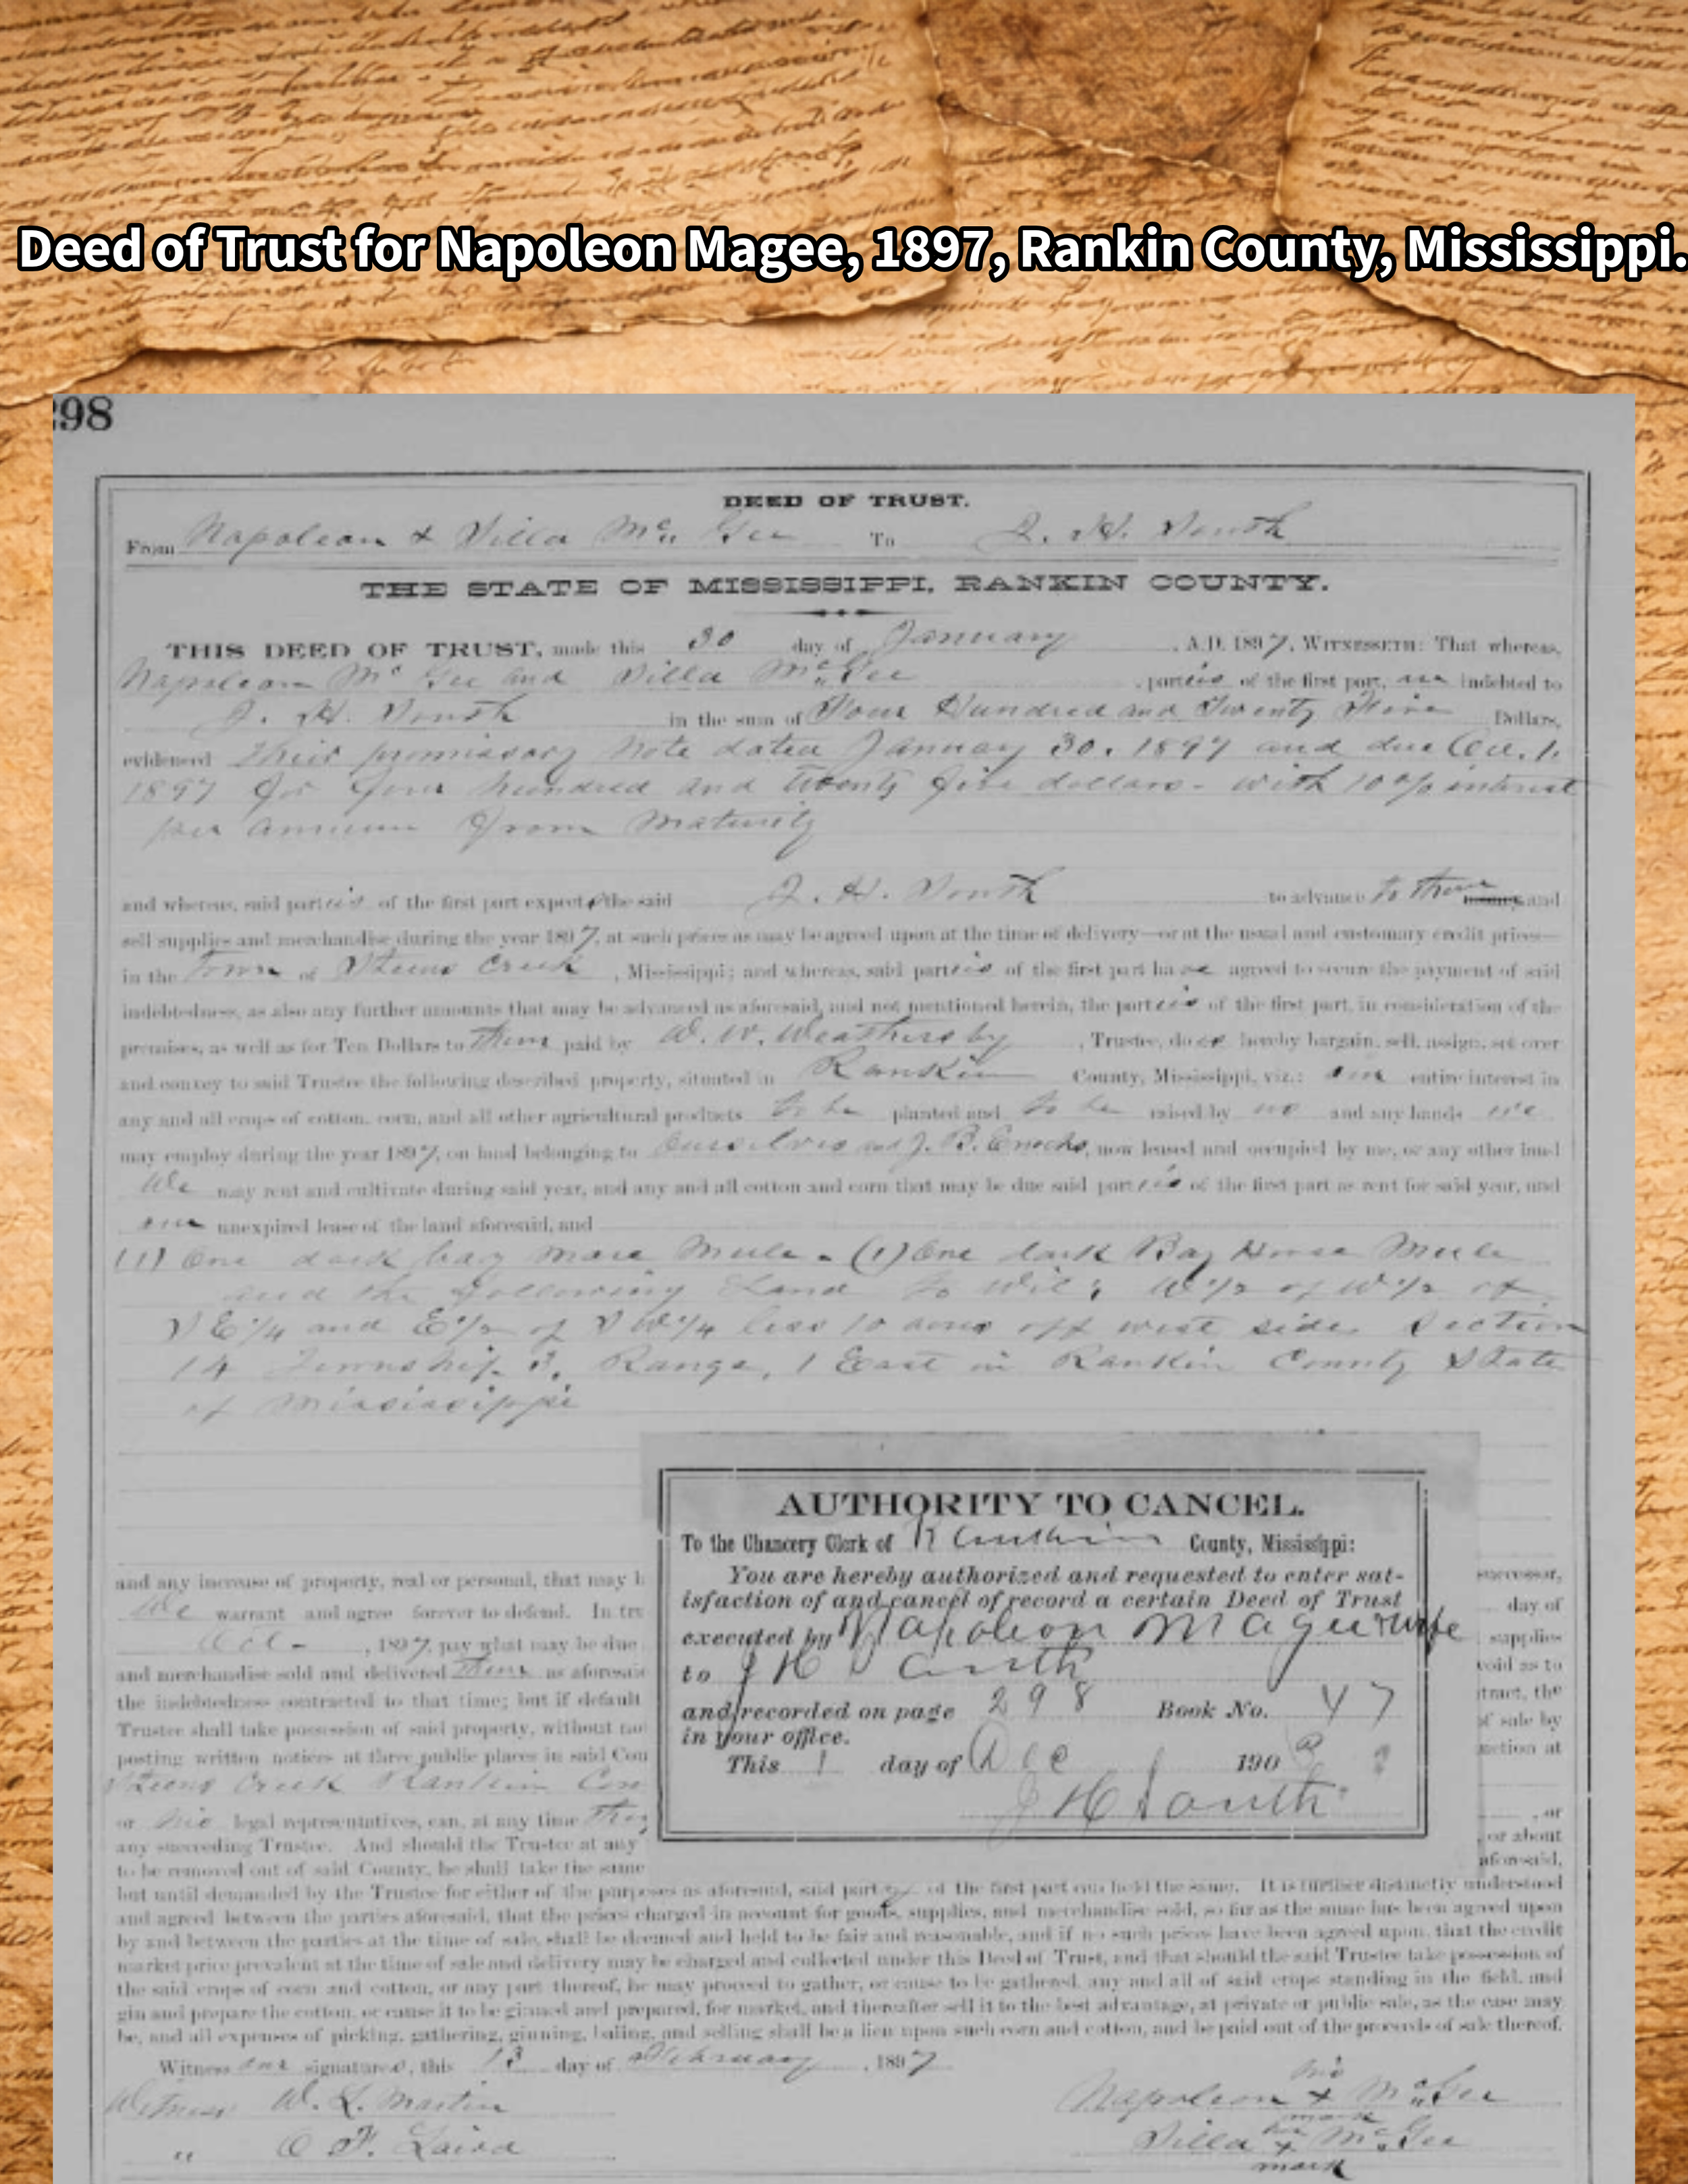 Deed of Trust for Napoleon Magee, 1897, Rankin County, Mississippi.
298
DEED OF TRUST.
From Napoleon & Silla Mc Gee To J. H. South
THE STATE OF MISSISSIPPI, RANKIN COUNTY.
THIS DEED OF TRUST, made this 30 day of January, A.D. 1897, WITNESSETH: That whereas,
Napoleon Mc Gee and Silla Mc Gee, parties of the first part, are indebted to
J. H. South in the sum of Four Hundred and Twenty Five Dollars,
evidenced their promissory note dated January 30. 1897 and due Oct. 1.
1897 for four hundred and twenty five dollars - with 10% interest
per annum from maturity
and whereas, said parties of the first part expect the said J. H. South to advance to them and
sell supplies and merchandise during the year 1897, at such prices as may be agreed upon at the time of delivery—or at the usual and customary credit prices—
in the town of Steens Creek, Mississippi; and whereas, said parties of the first part have agreed to secure the payment of said
indebtedness, as also any further amounts that may be advanced as aforesaid, and not mentioned herein, the parties of the first part, in consideration of the
premises, as well as for Ten Dollars to them paid by W. W. Weathersby, Trustee, do hereby bargain, sell, assign, set over
and convey to said Trustee the following described property, situated in Rankin County, Mississippi, viz.: our entire interest in
any and all crops of cotton, corn, and all other agricultural products to be planted and to be raised by us and any hands we
may employ during the year 1897, on land belonging to ourselves and J. B. Enochs, now leased and occupied by me, or any other land
We may rent and cultivate during said year, and any and all cotton and corn that may be due said parties of the first part as rent for said year, and
our unexpired lease of the land aforesaid, and
(1) One dark bay mare Mule - (1) One dark Bay Horse Mule
and the following Land to wit: W 1/2 of W 1/2 of
S E 1/4 and E 1/2 of S W 1/4 less 10 acres off west side Section
14 Township 3. Range, 1 East in Rankin County State
of Mississippi
AUTHORITY TO CANCEL.
To the Chancery Clerk of Rankin County, Mississippi:
You are hereby authorized and requested to enter sat-
isfaction of and cancel of record a certain Deed of Trust
executed by Napoleon Magee & wife
to J H South
and recorded on page 298 Book No. 47
in your office.
This 1 day of Dec 190
J H South
and any increase of property, real or personal, that may b
We warrant and agree forever to defend. In tru
Oct -, 1897, pay what may be due
and merchandise sold and delivered them as aforesaid
the indebtedness contracted to that time; but if default
Trustee shall take possession of said property, without not
posting written notices at three public places in said Cou
Steens Creek Rankin Cou
or his legal representatives, can, at any time they
any succeeding Trustee. And should the Trustee at any
to be removed out of said County, he shall take the same
successor,
day of
supplies
void as to
tract, the
of sale by
auction at
, or
, or about
aforesaid,
but until demanded by the Trustee for either of the purposes as aforesaid, said party of the first part can hold the same. It is further distinctly understood
and agreed between the parties aforesaid, that the prices charged in account for goods, supplies, and merchandise sold, so far as the same has been agreed upon
by and between the parties at the time of sale, shall be deemed and held to be fair and reasonable, and if no such prices have been agreed upon, that the credit
market price prevalent at the time of sale and delivery may be charged and collected under this Deed of Trust, and that should the said Trustee take possession of
the said crops of corn and cotton, or any part thereof, he may proceed to gather, or cause to be gathered, any and all of said crops standing in the field, and
gin and prepare the cotton, or cause it to be ginned and prepared, for market, and thereafter sell it to the best advantage, at private or public sale, as the case may
be, and all expenses of picking, gathering, ginning, baling, and selling shall be a lien upon such corn and cotton, and be paid out of the proceeds of sale thereof.
Witness our signatures, this 13 day of February, 1897
Witness W. L. Martin
" O F. Laird
Napoleon his x mark Mc Gee
Silla her x mark Mc Gee